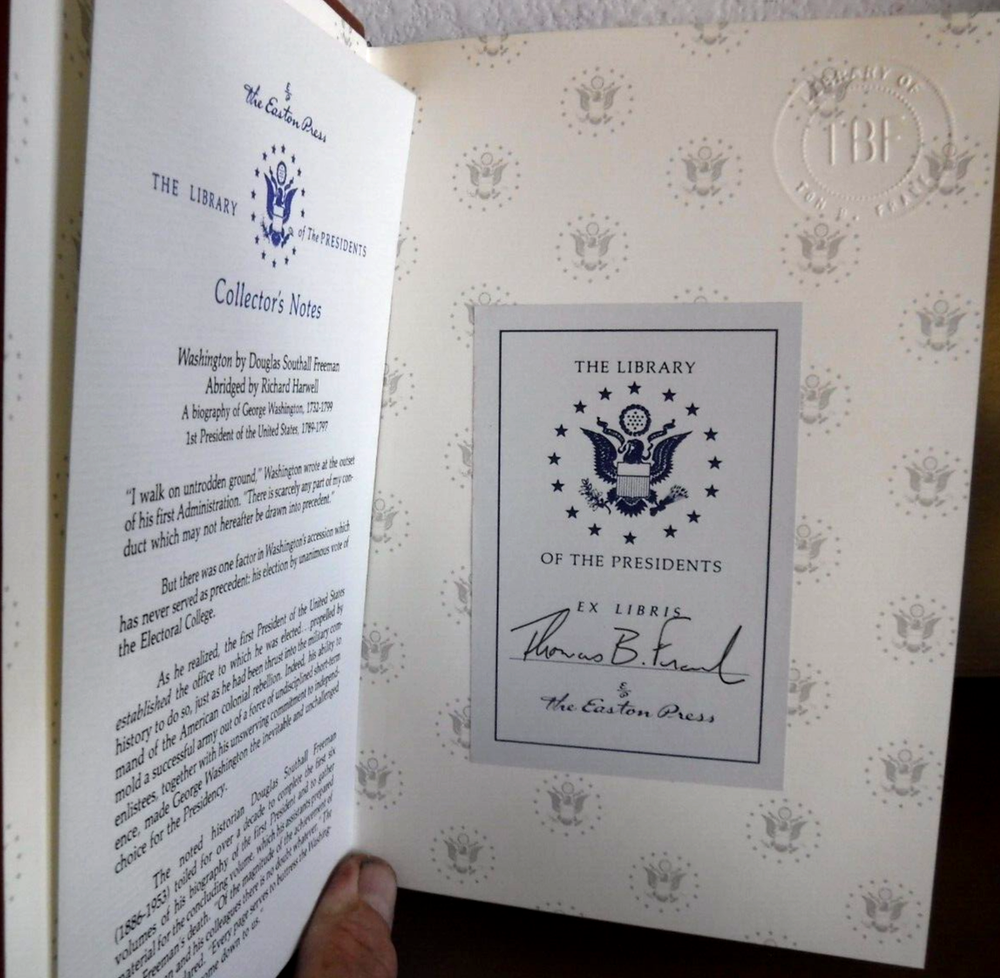 The Easton Press
THE LIBRARY
of The PRESIDENTS
Collector's Notes
Washington by Douglas Southall Freeman
Abridged by Richard Harwell
A biography of George Washington, 1732-1799
1st President of the United States, 1789-1797
"I walk on untrodden ground," Washington wrote at the outset
of his first Administration. "There is scarcely any part of my con-
duct which may not hereafter be drawn into precedent."
But there was one factor in Washington's accession which
has never served as precedent: his election by unanimous vote of
the Electoral College.
As he realized, the first President of the United States
established the office to which he was elected... propelled by
history to do so, just as he had been thrust into the military com-
mand of the American colonial rebellion. Indeed, his ability to
mold a successful army out of a force of undisciplined short-term
enlistees, together with his unswerving commitment to independ-
ence, made George Washington the inevitable and unchallenged
choice for the Presidency.
The noted historian Douglas Southall Freeman
(1886-1953) toiled for over a decade to complete the first six
volumes of his biography of the first President and to gather
material for the concluding volume, which his assistants prepared
Freeman's death. "Of the magnitude of the achievement of
and his colleagues there is no doubt whatever," The
"Every page serves to buttress the Washing-
come down to us."
LIBRARY OF
TBF
THE LIBRARY
OF THE PRESIDENTS
EX LIBRIS
Thomas B. Frank
The Easton Press